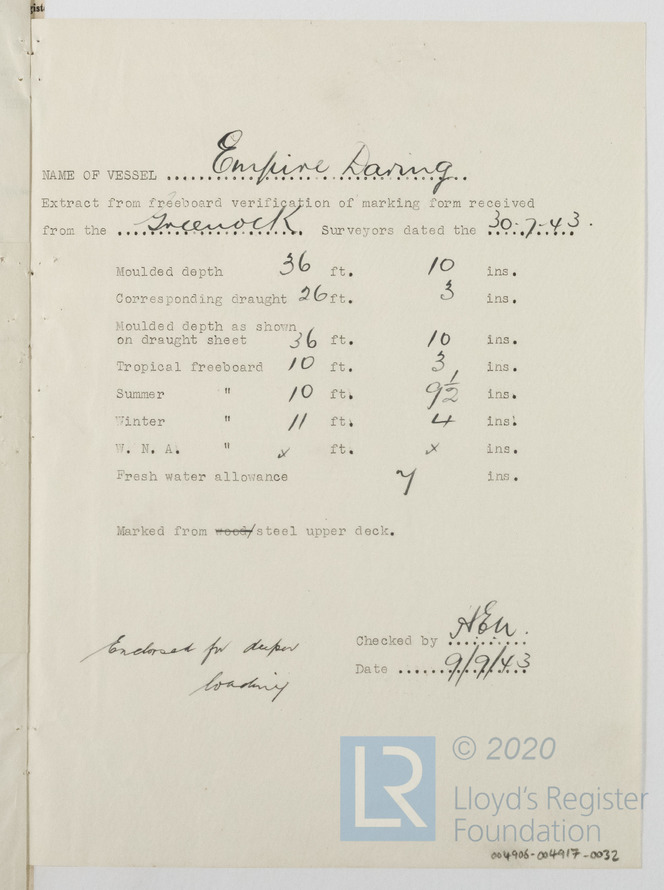 NAME OF VESSEL Empire Daring
Extract from freeboard verification of marking form received
from the Greenock Surveyors dated the 30.7.43.
Moulded depth 36 ft. 10 ins.
Corresponding draught 26 ft. 3 ins.
Moulded depth as shown
on draught sheet 36 ft. 10 ins.
Tropical freeboard 10 ft. 3 ins.
Summer " 10 ft. 9½ ins.
Winter " 11 ft. 4 ins.
W. N. A. " x ft. x ins.
Fresh water allowance 7 ins.
Marked from wood/steel upper deck.
Endorsed for deeper
loading
Checked by
Date 9/9/43
LR
© 2020
Lloyd's Register
Foundation
004906-004917-0032